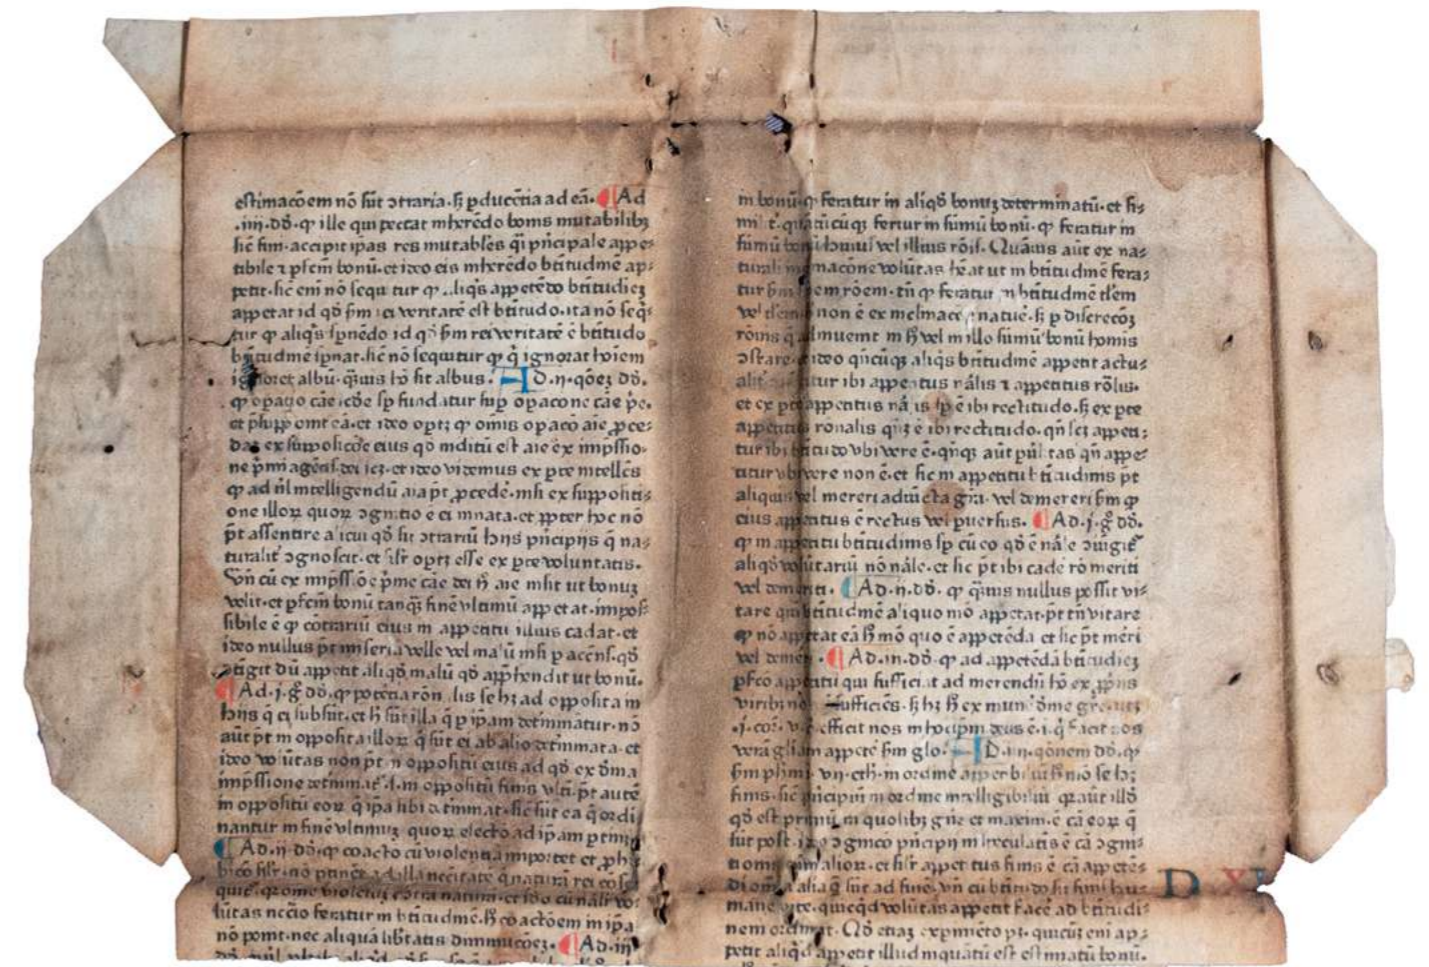 estimacōem nō sūt ɔtraria. ſꝫ ꝑducētia ad eā. ¶ Ad
.iiii. dō. ꝙ ille qui peccat inherēdo bonis mutabilibꝫ
sic fini. accipit ipas res mutabiles q̄i pͥncipale appe⸗
tibile ⁊ pfcm bonū. et ideo eis inherēdo btitudinē ap⸗
petit. sic eni nō sequitur ꝙ aliqͥs appetēdo btitudiēꝫ
appetat id qd̄ ẜm rei veritatē est btitudo. ita nō seqͥ⸗
tur ꝙ aliqͥs spnēdo id qd̄ ẜm rei veritatē ē btitudo
btitudinē spnat. sic nō sequitur ꝙ qͥ ignorat hoīem
ignoret albū. qͣuis hō sit albus. AD .ii. qōeꝫ dō.
ꝙ opaꝯo cāe scōe sp fundatur sup opacone cāe pͥe.
et p̄supp̄omt eā. et ideo optꝫ ꝙ omis opacō aīe ꝓce⸗
dat ex supposicōe eius qd̄ inditū est aīe ex imp̄ssio⸗
ne pͥmi agētis dei scꝫ. et ideo videmus ex pte intellcs
ꝙ ad nl̄ intelligendū aīa pt̄ ꝓcedē. nisi ex suppositi⸗
one illoꝝ quoꝝ ɔgnitio ē ei innata. et ꝓpter hoc nō
pt̄ assentire alicui qd̄ sit ɔtrariū hͥis pͥncipiis q̄ na⸗
turalit̄ ɔgnoscit. et sīlr optꝫ esse ex pte voluntatis.
Vn̄ cū ex imp̄ssiōe pͥme cāe dei h̄ aīe insit ut bonuꝫ
velit. et pfcm bonū tanqͣ finē vltimū appetat. impos⸗
sibile ē ꝙ cōtrariū eius in appetitu illius cadat. et
ideo nullus pt̄ miseria velle vel malū nisi p accēns. qd̄
ɔtīgit dū appetit aliqd̄ malū qd̄ app̄hendit ut bonū.
¶ Ad .j. g̊ dō. ꝙ potētia rōnalis se hꝫ ad opposita in
hͥis q̄ ei subsūt. et h̄ sūt illa q̄ p ipam det̄minatur. nō
aūt pt̄ in opposita illoꝝ q̄ sūt ei ab alio det̄minata. et
ideo volūtas non pt̄ in oppositū eius ad qd̄ ex dīna
imp̄ssione det̄minat̄. s. in oppositū finis vlti. pt̄ autē
in oppositū eoꝝ q̄ ipa sibi det̄minat. sic sūt ea q̄ ordi
nantur in finē vltimuꝫ quoꝝ electō ad ipam ptinꝫ.
¶ Ad .ii. dō. ꝙ coactō cū violentiā importet et phi
bicō sīlr. nō ptinet ad illā necītate q̄ naturā rei cōse
quit̄. qꝛ omē violētū ɔtra naturam. et idō cū nālr vo⸗
lūtas necīo feratur in btitudinē. h̄ coactōem in ipa
nō pomt. nec aliquā libtatis diminucōeꝫ. ¶ Ad .iii
in bonū. ꝙ feratur in aliqd̄ bonuꝫ determinatū. et si⸗
mil̄r. quātūcūqꝫ fertur in sūmū bonū. ꝙ feratur in
sūmū bonū huiuſ vel illius rōis. Quāuis aūt ex na⸗
turali inclinacōne volūtas hēat ut in btitudinē fera⸗
tur ẜm cōem rōem. tn̄ ꝙ feratur in btitudinē tlem
vel tlem non ē ex inclinacōe natue. sꝫ p discrecōꝫ
rōnis q̄ adinuenit in h̄ vel in illo sūmū bonū homis
ɔstare. et ideo qn̄cūqꝫ aliqͥs btitudinē appetit actu⸗
alit̄ ɔiūgitur ibi appetitus nālis ⁊ appetitus rōlis.
et ex pte appetitus nālis sp ē ibi rectitudo. sꝫ ex pte
appetitus rōnalis qn̄qꝫ ē ibi rectitudo. qn̄ scꝫ appeti⸗
tur ibi btitudo vbi vere ē. qn̄qꝫ aūt pūītas qn̄ appe⸗
titur vbi vere non ē. et sic in appetitu btitudinis pt̄
aliquis vel mereri adiūcta grā. vel demereri ẜm ꝙ
eius appetitus ē rectus vel puersus. ¶ Ad .j. g̊ dō.
ꝙ in appetitu btitudinis sp cū eo qd̄ ē nāle ɔiūgit̄
aliqd̄ volūtariū nō nāle. et sic pt̄ ibi cadē rō meriti
vel demeriti. ¶ Ad .ii. dō. ꝙ qͣuis nullus possit vi⸗
tare quin btitudinē aliquo mō appetat. pt̄ tn̄ vitare
ꝙ nō appetat eā h̄ mō quo ē appetēda et sic pt̄ mēri
vel demeri. ¶ Ad .iii. dō. ꝙ ad appetēdā btitudiēꝫ
pfco appetitu qui sufficiat ad merendū hō ex ꝓpriis
viribꝫ nō ē sufficiēs. sꝫ hꝫ h̄ ex mun dīne
.j. cor. v. efficit nos in hocipm deus ē. i. qͥ facit nos
verā gliam appetē ẜm glo. AD .iii. qōnem dō. ꝙ
ẜm phm. vii. eth. in ordine appetibiliū h̄ mō se hꝫ
finis. sic pͥncipiū in ordine intelligibiliū qꝛ aūt illd̄
qd̄ est primū in quolibꝫ gn̄e et maxim. ē cā eoꝝ q̄
sūt post. ideo ɔgnicō pͥncipii in speculatis ē cā ɔgni⸗
tiomis alioꝝ. et sīlr appetitus finis ē cā appetēs⸗
di omīa alia q̄ sūt ad finē. vn̄ cū btitudo sit finis hu⸗
mane vite. quicqd̄ volūtas appetit facē ad btitudi⸗
nem ordinat. Qd̄ etiaꝫ expimēto pꝫ. quicūꝫ eni ap⸗
petit aliqd̄ appetit illud inquātū est estimatū bonū.
D X